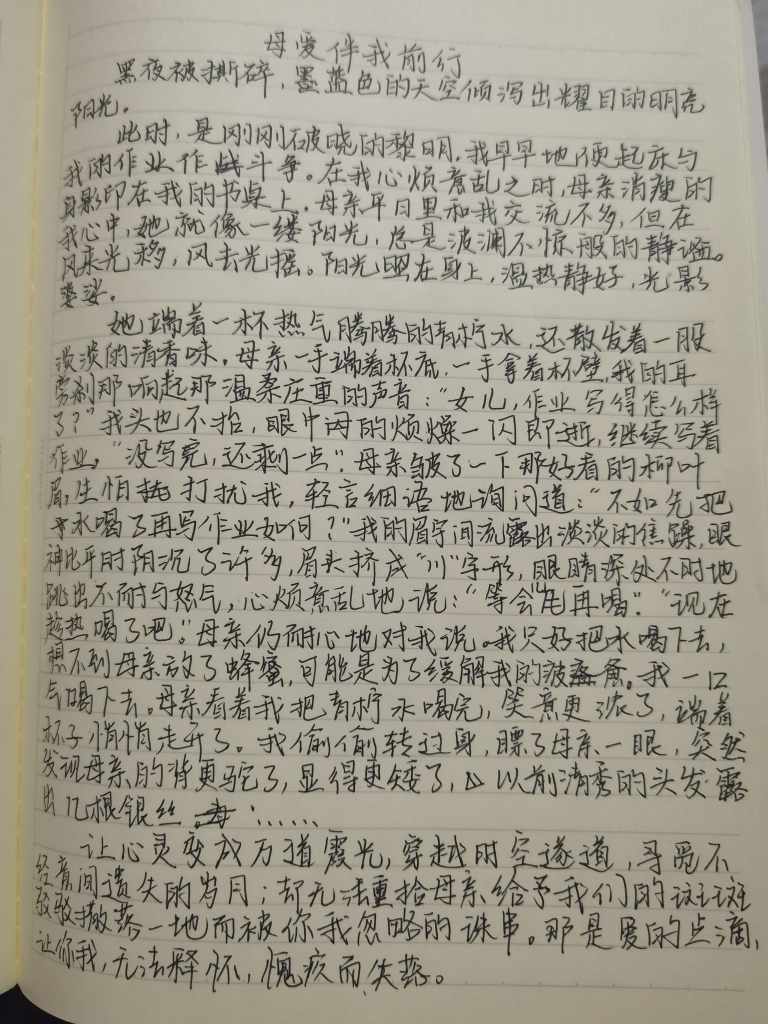 母爱伴我前行
黑夜被撕碎，墨蓝色的天空倾泻出耀目的明亮
阳光。
此时，是刚刚破晓的黎明，我早早地便起床与
我的作业作战斗争。在我心烦意乱之时，母亲消瘦的
身影印在我的书桌上，母亲平日里和我交流不多，但在
我心中，她就像一缕阳光，总是波澜不惊般的静谧。
风来光移，风去光摇。阳光照在身上，温热静好，光影
婆娑。
她端着一杯热气腾腾的青柠水，还散发着一股
淡淡的清香味。母亲一手端着杯底，一手拿着杯壁，我的耳
旁刹那响起那温柔庄重的声音：“女儿，作业写得怎么样
了？”我头也不抬，眼中闪的烦燥一闪即逝，继续写着
作业，“没写完，还剩一点”。母亲皱了一下那好看的柳叶
眉，生怕打扰我，轻言细语地询问道：“不如先把
水喝了再写作业如何？”我的眉宇间流露出淡淡的焦躁，眼
神比平时阴沉了许多，眉头挤成“川”字形，眼睛深处不时地
跳出不耐与怒气，心烦意乱地说：“等会儿再喝”。“现在
趁热喝了吧。”母亲仍耐心地对我说。我只好把水喝下去，
想不到母亲放了蜂蜜，可能是为了缓解我的疲惫。我一口
气喝下去。母亲看着我把青柠水喝完，笑意更浓了，端着
杯子悄悄走开了。我偷偷转过身，瞟了母亲一眼，突然
发现母亲的背更驼了，显得更矮了，以前清秀的头发露
出几根银丝……
让心灵变成万道霞光，穿越时空遂道，寻觅不
经意间遗失的岁月；却无法重拾母亲给予我们的斑斑
驳驳撒落一地而被你我忽略的诛串。那是爱的点滴，
让你我，无法释怀，愧疚而失落。